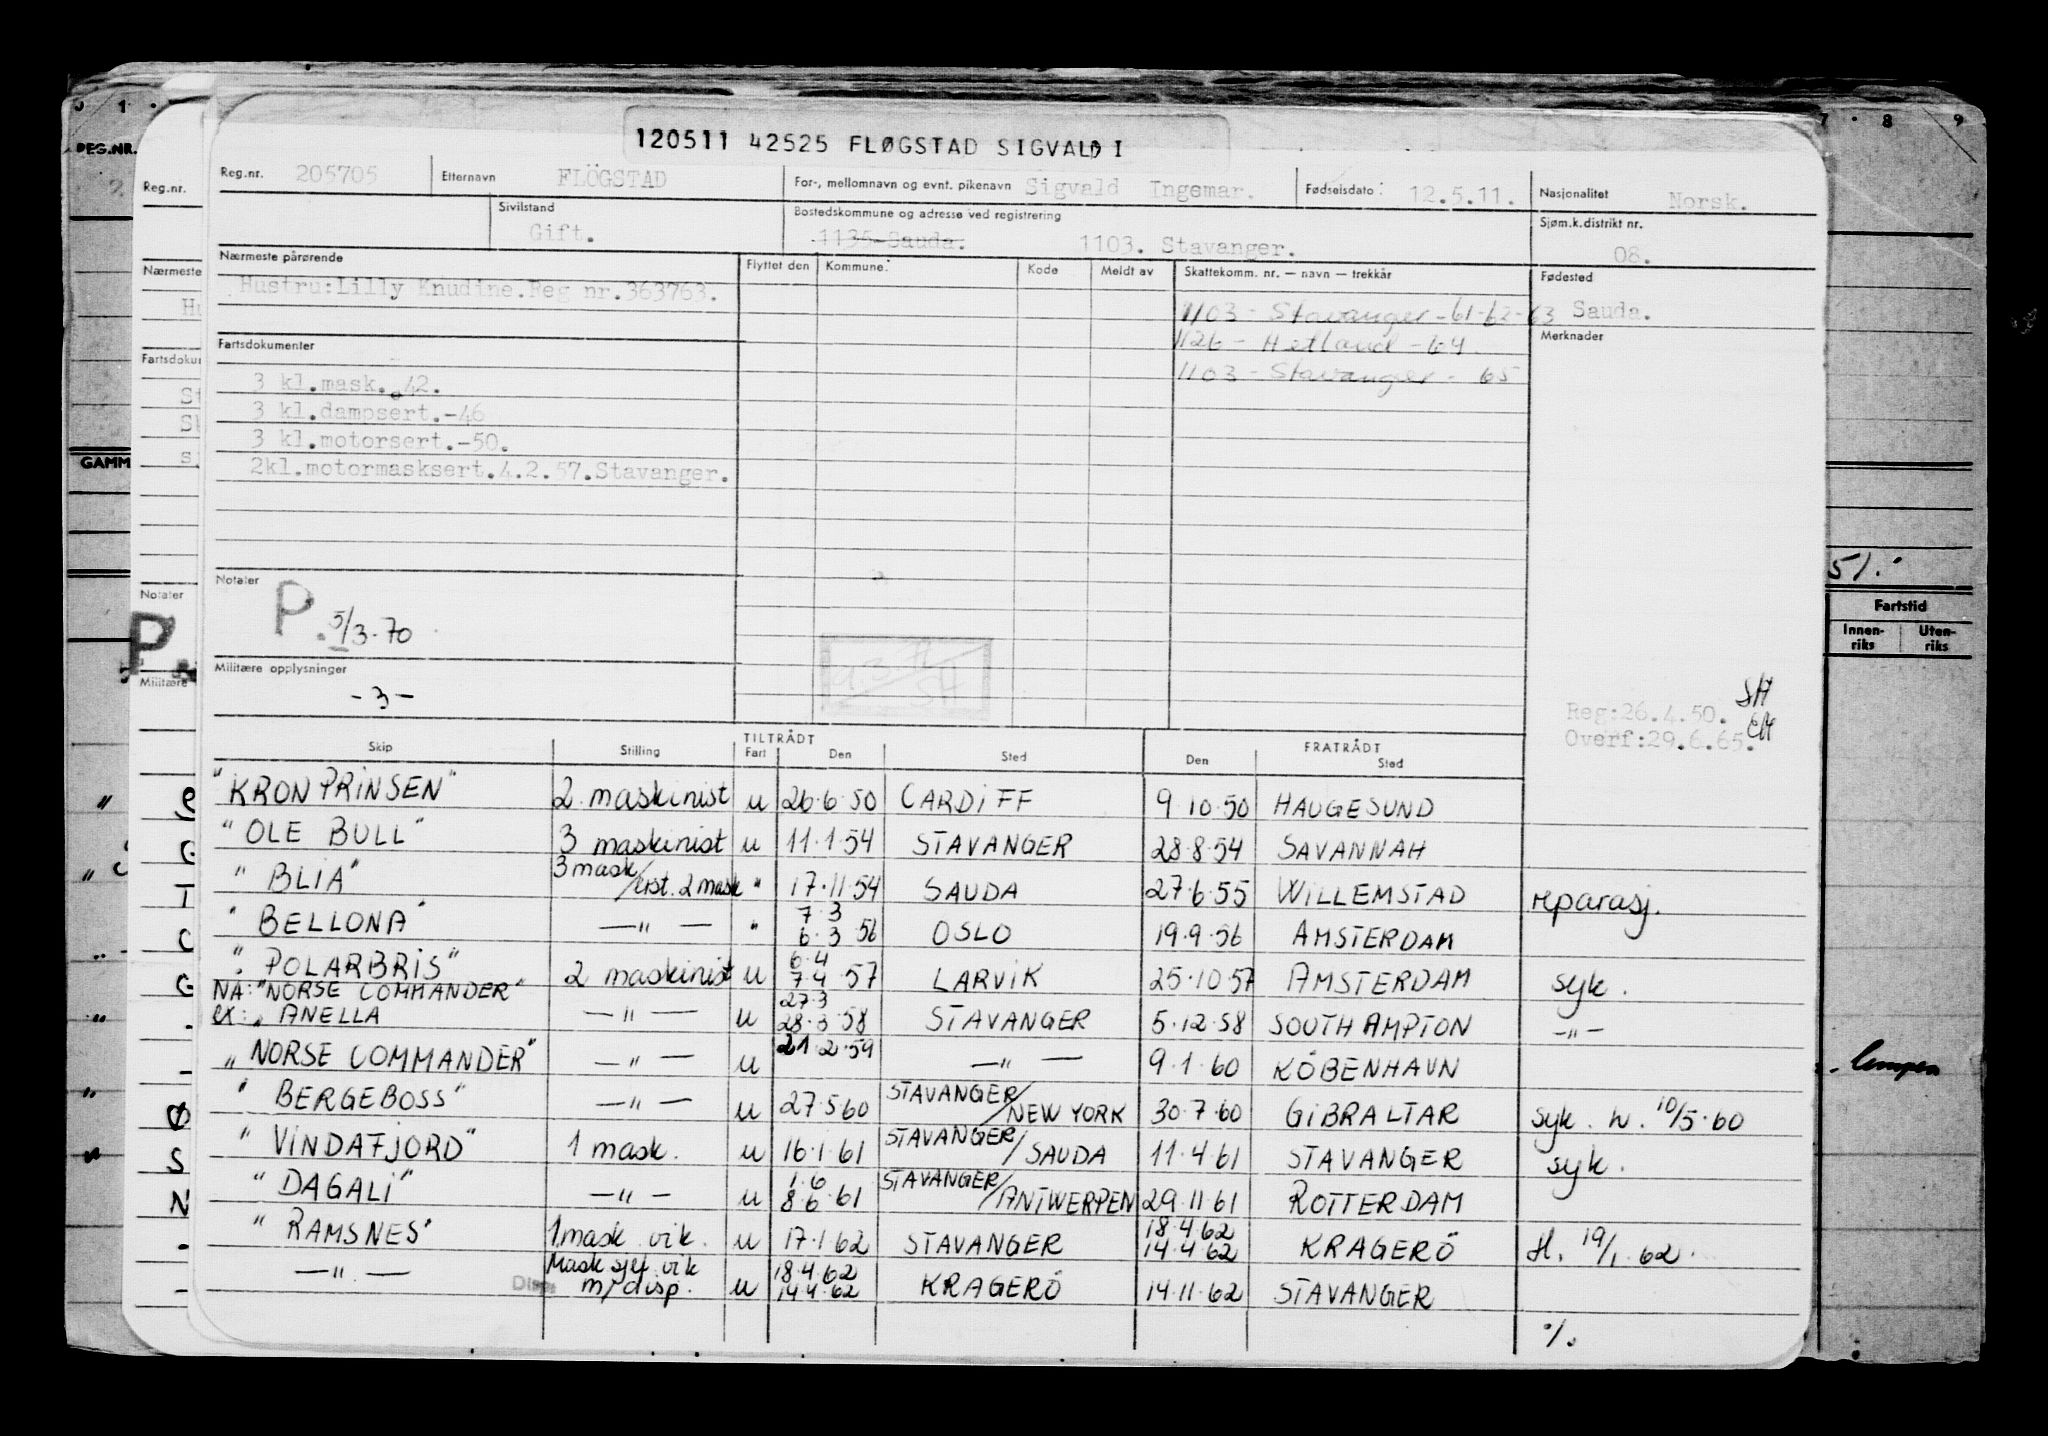 120511 42525 FLØGSTAD SIGVALD I
Reg.nr. 205705 Etternavn FLÖGSTAD For-, mellomnavn og evnt. pikenavn Sigvald Ingemar. Fødselsdato: 12.5.11. Nasjonalitet Norsk.
Sivilstand Gift. Bostedskommune og adresse ved registrering 1135 Sauda. 1103. Stavanger. Sjøm.k.distrikt nr. 08.
Nærmeste pårørende Flyttet den Kommune: Kode Meldt av Skattekomm. nr. — navn — trekkår Fødested
Hustru:Lilly Knudine.Reg nr.363763. 1103 - Stavanger - 61-62-63 Sauda.
1126 - Hetland - 64. Merknader
Fartsdokumenter 1103 - Stavanger - 65
3 kl.mask. 42.
3 kl.dampsert.-46
3 kl.motorsert.-50.
2kl.motormasksert.4.2.57.Stavanger.
Notater P. 5/3.70
Militære opplysninger
- 3 -
Reg:26.4.50. SH
Overf:29.6.65. EH
TILTRÅDT FRATRÅDT
Skip Stilling Fart Den Sted Den Sted
"KRONPRINSEN" 2. maskinist u 26.6.50 CARDIFF 9.10.50 HAUGESUND
"OLE BULL" 3 maskinist u 11.1.54 STAVANGER 28.8.54 SAVANNAH
"BLIA" 3 mask/erst. 2 mask " 17.11.54 SAUDA 27.6.55 WILLEMSTAD reparasj.
"BELLONA" —"— " 7.3 6.3 56 OSLO 19.9.56 AMSTERDAM
"POLARBRIS" 2 maskinist u 6.4 7.4 57 LARVIK 25.10.57 AMSTERDAM syk.
NA: "NORSE COMMANDER"
ex: "ANELLA —"— u 27.3 28.3.58 STAVANGER 5.12.58 SOUTHAMPTON —"—
"NORSE COMMANDER" —"— u 21.2.59 —"— 9.1.60 KÖBENHAVN
"BERGEBOSS" —"— u 27.5.60 STAVANGER/NEW YORK 30.7.60 GIBRALTAR syk. h. 10/5.60
"VINDAFJORD" 1 mask. u 16.1.61 STAVANGER/SAUDA 11.4.61 STAVANGER syk.
"DAGALI" —"— u 1.6 8.6.61 STAVANGER/ANTWERPEN 29.11.61 ROTTERDAM
"RAMSNES" 1mask vik. u 17.1.62 STAVANGER 18.4.62 14.4.62 KRAGERÖ H. 19/1.62.
—"— Disp. Mask sjef vik m/disp. u 18.4.62 14.4.62 KRAGERÖ 14.11.62 STAVANGER
./.
REG.NR.
Reg.nr.
Nærmeste
Fartsdoku
GAMM
Notater
P.
Militære
7 . 8 9
51.
Fartstid
Innen-riks Uten-riks